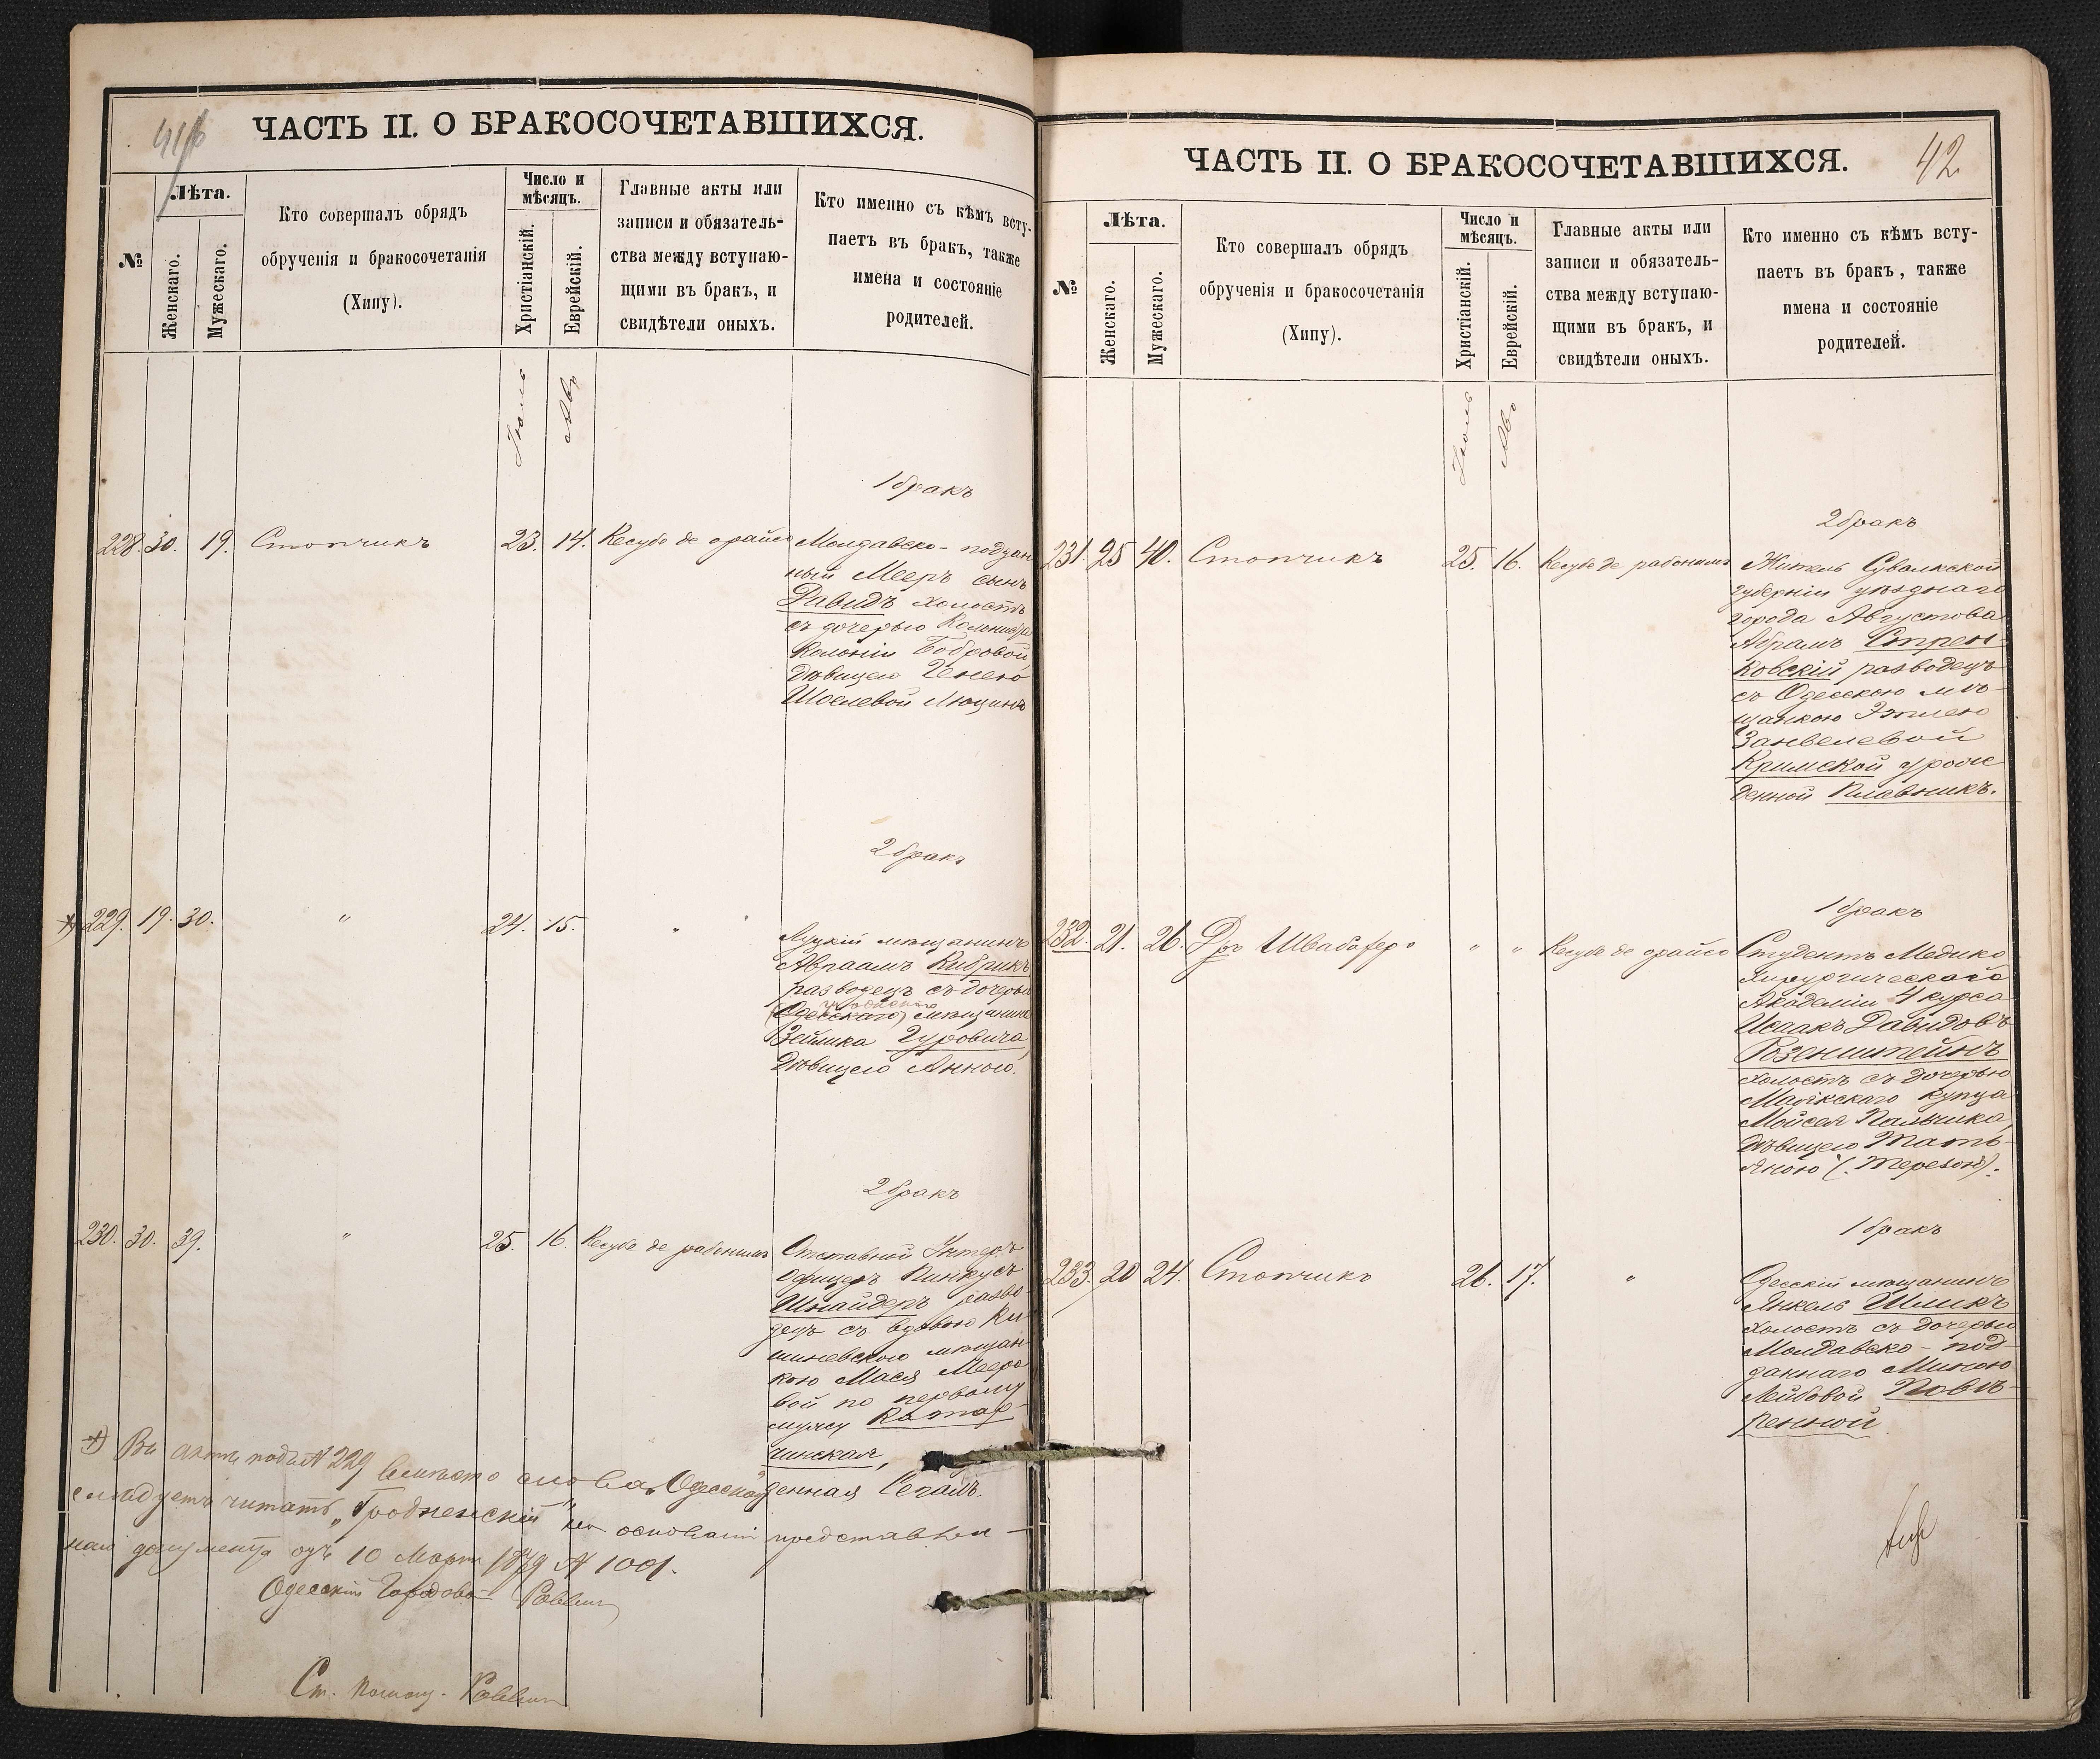 41б
ЧАСТЬ II. О БРАКОСОЧЕТАВШИХСЯ.
№
Лѣта.
Женскаго.
Мужескаго.
Кто совершалъ обрядъ
обрученія и бракосочетанія
(Хипу).
Число и
мѣсяцъ.
Христіанскій.
Еврейскій.
Главные акты или
записи и обязатель-
ства между вступаю-
щими въ бракъ, и
свидѣтели оныхъ.
Кто именно съ кѣмъ всту-
паетъ въ бракъ, также
имена и состояніе
родителей.
Іюль
Авъ
1 бракъ
228. 30. 19. Стопчикъ 23. 14. Кесубо де орайсо
Молдавско-поддан
ный Мееръ сынъ
Давидъ холостъ
съ дочерью Колониста
Колоніи Бобровой,
Дѣвицею Генею
Шоелевой Люцинъ
2 бракъ
*) 229. 19. 30. " 24. 15. "
Луцкій мѣщанинъ
Авраамъ Кибрикъ
разводецъ съ дочерью
гродненскаго
(Одесскаго) мѣщанина
Зейлика Гуровича,
Дѣвицею Анною.
2 бракъ
230. 30. 39. " 25. 16. Кесубо де рабонимъ
Отставной Унтеръ
Офицеръ Пинкусъ
Шнайдеръ разво-
децъ съ вдовою Ки-
шиневскою мѣщан-
кою Мася Мееро
вой по первому
мужу
чинская,
денная Сегалъ.
*) Въ актѣ подъ № 229 вмѣсто слова „Одесскій"
слѣдуетъ читать „Гродненскій" на основаніи представлен-
наго документа отъ 10 Марта 1879 № 1001.
Одесскій Городовой
Ст. Помощ.
42
ЧАСТЬ II. О БРАКОСОЧЕТАВШИХСЯ.
№
Лѣта.
Женскаго.
Мужескаго.
Кто совершалъ обрядъ
обрученія и бракосочетанія
(Хипу).
Число и
мѣсяцъ.
Христіанскій.
Еврейскій.
Главные акты или
записи и обязатель-
ства между вступаю-
щими въ бракъ, и
свидѣтели оныхъ.
Кто именно съ кѣмъ всту-
паетъ въ бракъ, также
имена и состояніе
родителей.
Іюль
Авъ
2 бракъ
231. 25 40. Стопчикъ 25. 16. Кесубо де рабонимъ
Житель Сувалкской
губерніи уѣзднаго
города Августова
Абрамъ Стрен-
ковскій разводецъ
съ Одесскою мѣ-
щанкою Этлею
Занвелевой
Кримской урож
денной Плавникъ.
1 бракъ
232. 21. 26. Др. Швабахеръ " " Кесубо де орайсо
Студентъ Медико
Хирургической
Академіи 4 курса
Исаакъ Давидовъ
Розенштейнъ
холостъ съ дочерью
Маякскаго купца
Мойсея Пальчика,
Дѣвицею Тать-
яною (Терезою).
1 бракъ
233. 20 24. Стопчикъ 26. 17. "
Одесскій мѣщанинъ
Янкель Шликъ
холостъ съ дочерью
Молдавско-под-
даннаго Миною
Лейбовой Повѣ-
ренной